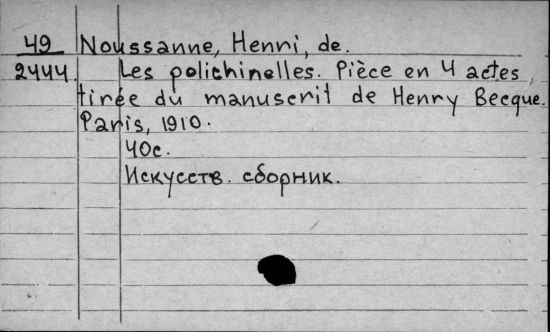 49 Noussanne, Henri, de.
2444. Les polichinelles. Pièce en 4 actes,
tirée du manuscrit de Henry Becque.
Paris, 1910.
40с.
Искусств. сборник.